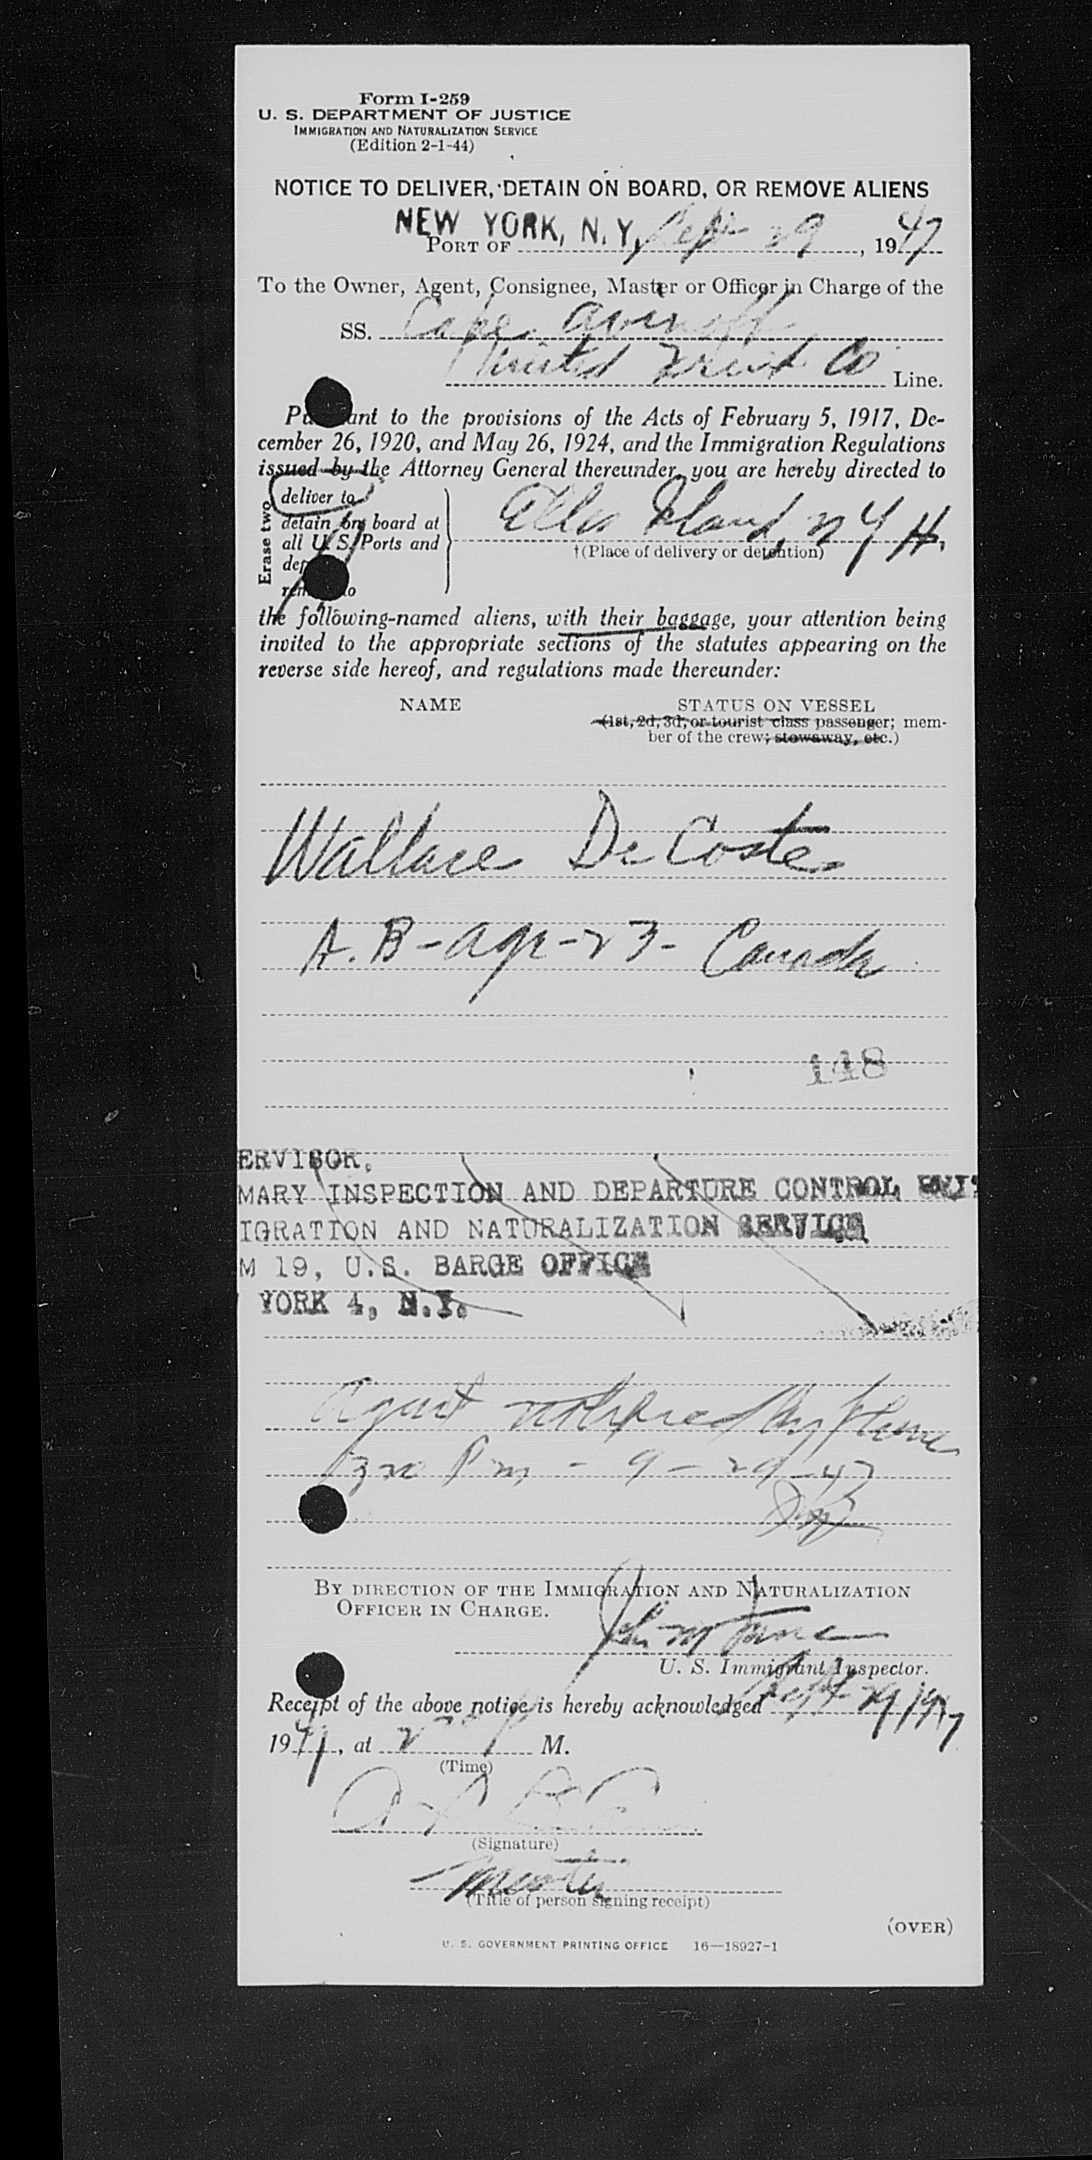 Form I-259
U. S. DEPARTMENT OF JUSTICE
IMMIGRATION AND NATURALIZATION SERVICE
(Edition 2-1-44)
NOTICE TO DELIVER, DETAIN ON BOARD, OR REMOVE ALIENS
NEW YORK, N.Y. Sept 29
PORT OF , 1947
To the Owner, Agent, Consignee, Master or Officer in Charge of the
SS. Cape Avinoff
United Fruit Co Line.
Pursuant to the provisions of the Acts of February 5, 1917, De-
cember 26, 1920, and May 26, 1924, and the Immigration Regulations
issued by the Attorney General thereunder, you are hereby directed to
Erase two
deliver to
detain on board at
all U. S. Ports and
remove to
Ellis Island, N Y H.
†(Place of delivery or detention)
the following-named aliens, with their baggage, your attention being
invited to the appropriate sections of the statutes appearing on the
reverse side hereof, and regulations made thereunder:
NAME STATUS ON VESSEL
(1st, 2d, 3d, or tourist class passenger; mem-
ber of the crew; stowaway, etc.)
Wallace DeCoste
A.B - age - 23 - Canada
148
ERVISOR,
MARY INSPECTION AND DEPARTURE CONTROL UNIT
IGRATION AND NATURALIZATION SERVICE
M 19, U.S. BARGE OFFICE
YORK 4, N.Y.
Agent notified by phone
Pm - 9 - 29 - 47
BY DIRECTION OF THE IMMIGRATION AND NATURALIZATION
OFFICER IN CHARGE.
U. S. Immigrant Inspector.
Receipt of the above notice is hereby acknowledged Sept 29 1947
1947, at P M.
(Time)
(Signature)
Master
(Title of person signing receipt)
(OVER)
U. S. GOVERNMENT PRINTING OFFICE 16—18927-1